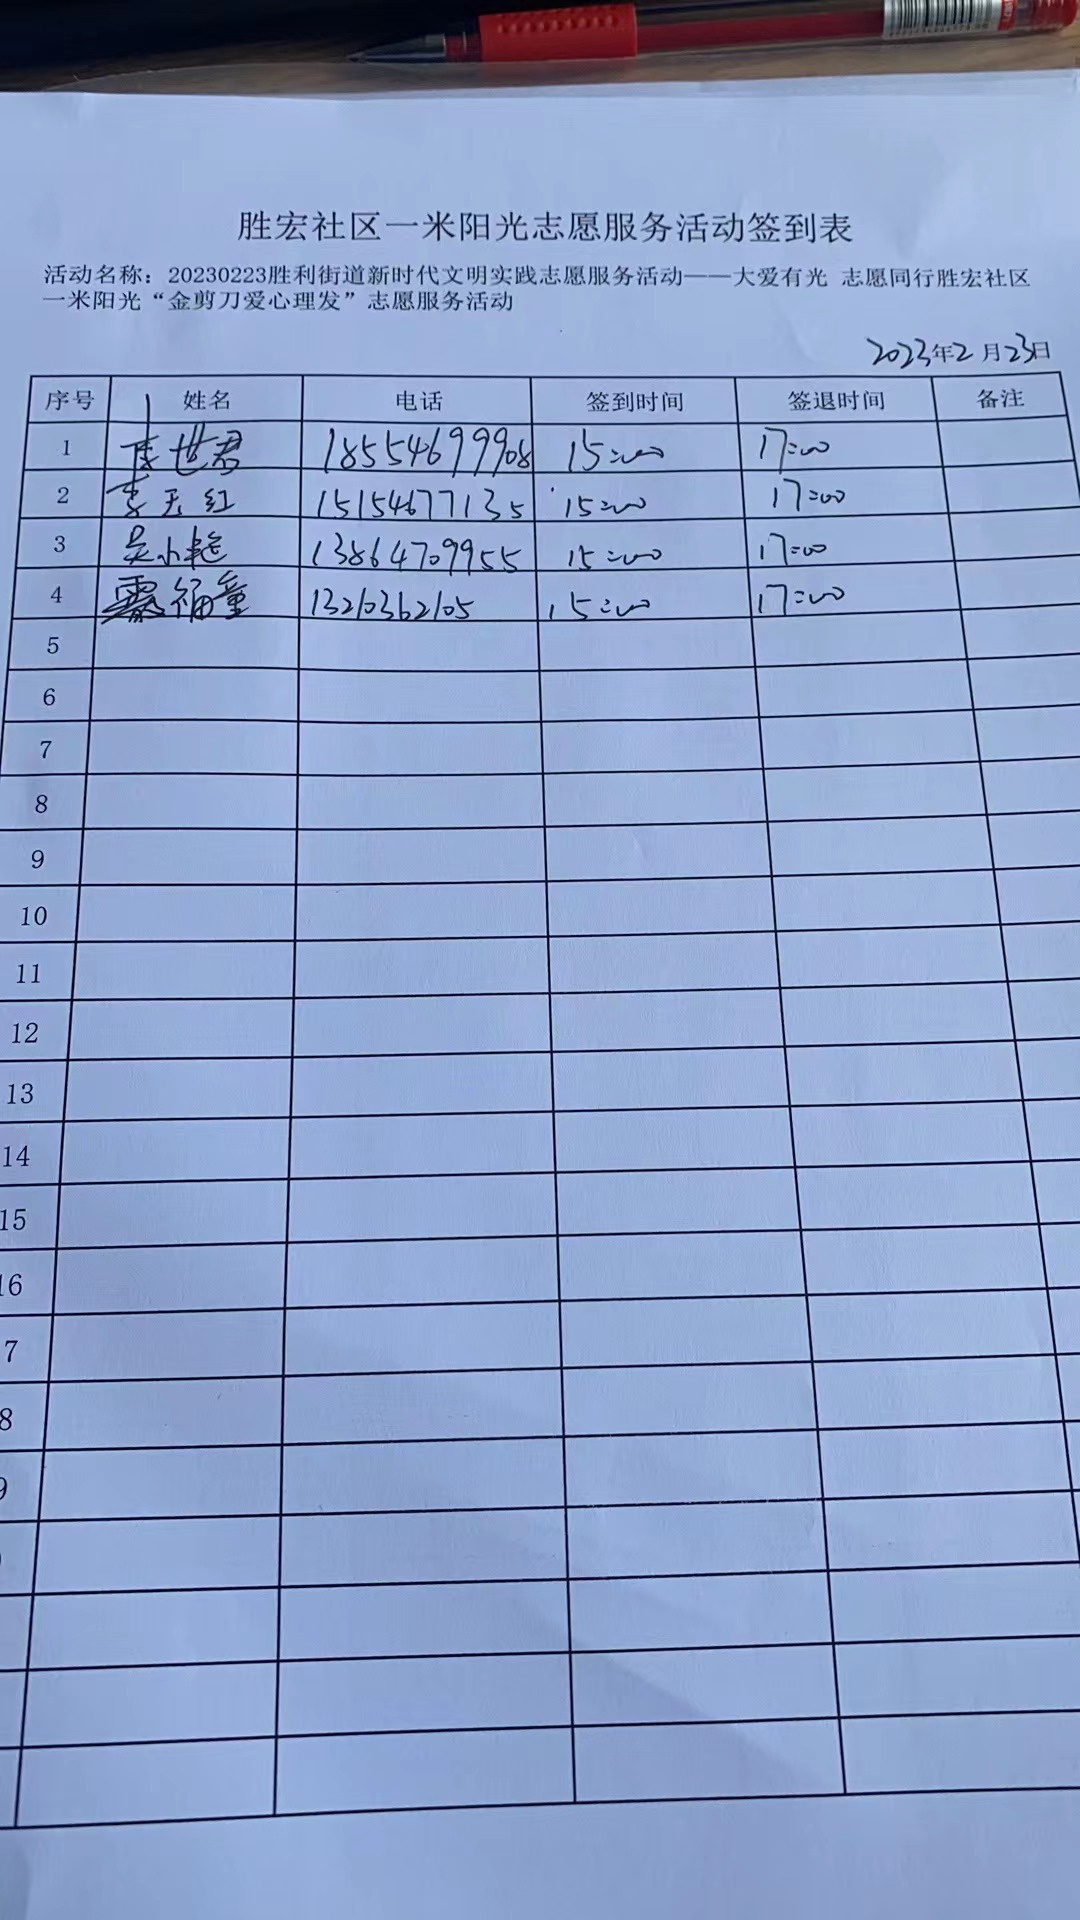 胜宏社区一米阳光志愿服务活动签到表
活动名称：20230223胜利街道新时代文明实践志愿服务活动——大爱有光 志愿同行胜宏社区
一米阳光“金剪刀爱心理发”志愿服务活动
2023年2月23日
序号 姓名 电话 签到时间 签退时间 备注
1 李世君 18554699908 15:00 17:00
2 李玉红 15154677135 15:00 17:00
3 吴小艳 13864709955 15:00 17:00
4 福童 13210362105 15:00 17:00
5
6
7
8
9
10
11
12
13
14
15
16
7
8
9